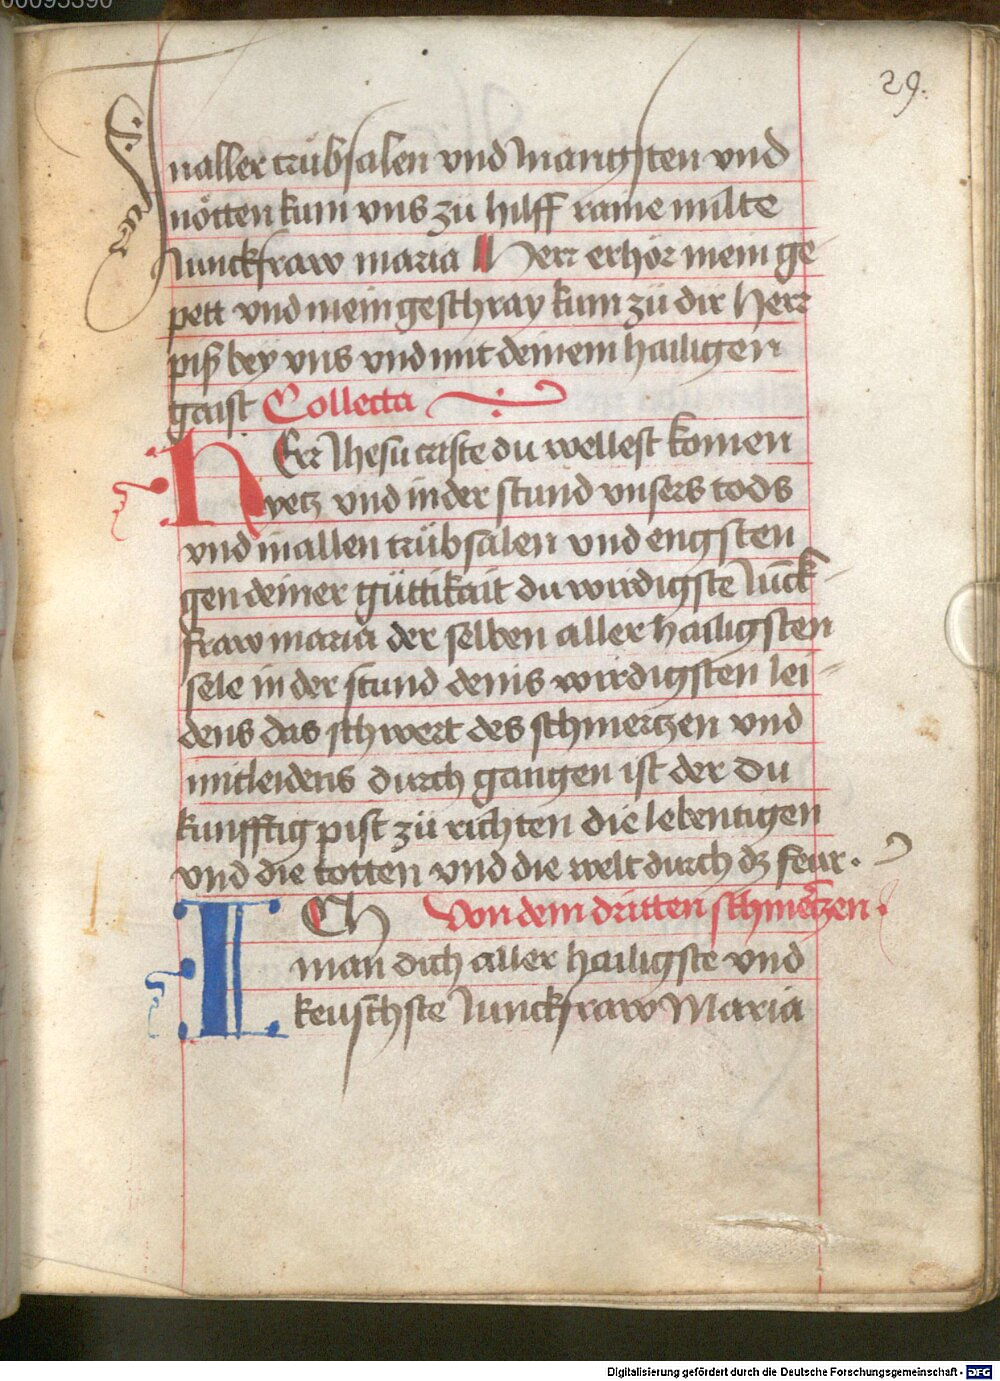 00095390
29.
In aller trübsalen vnd in angsten vnd
nötten kum vns zü hilff raine milte
Junckfraw maria Herr erhör mein ge
pett vnd mein geschray kum zü dir Herr
piß bey vns vnd mit deinem hailigen
gaist Collecta
HErr Jhesu criste du wellest komen
yetz vnd in der stund vnsers tods
vnd in allen trübsalen vnd engsten
gen deiner güttikait du wirdigste Junck-
fraw maria der selben aller hailigsten
sele in der stund deins wirdigsten lei-
dens das schwert des schmertzen vnd
mitleidens durch gangen ist der du
kunfftig pist zü richten die lebentigen
vnd die totten vnd die welt durch dz feur.
ICh Von dem dritten schmertzen.
man dich aller hailigste vnd
keuschste Junckfraw Maria
Digitalisierung gefördert durch die Deutsche Forschungsgemeinschaft - DFG